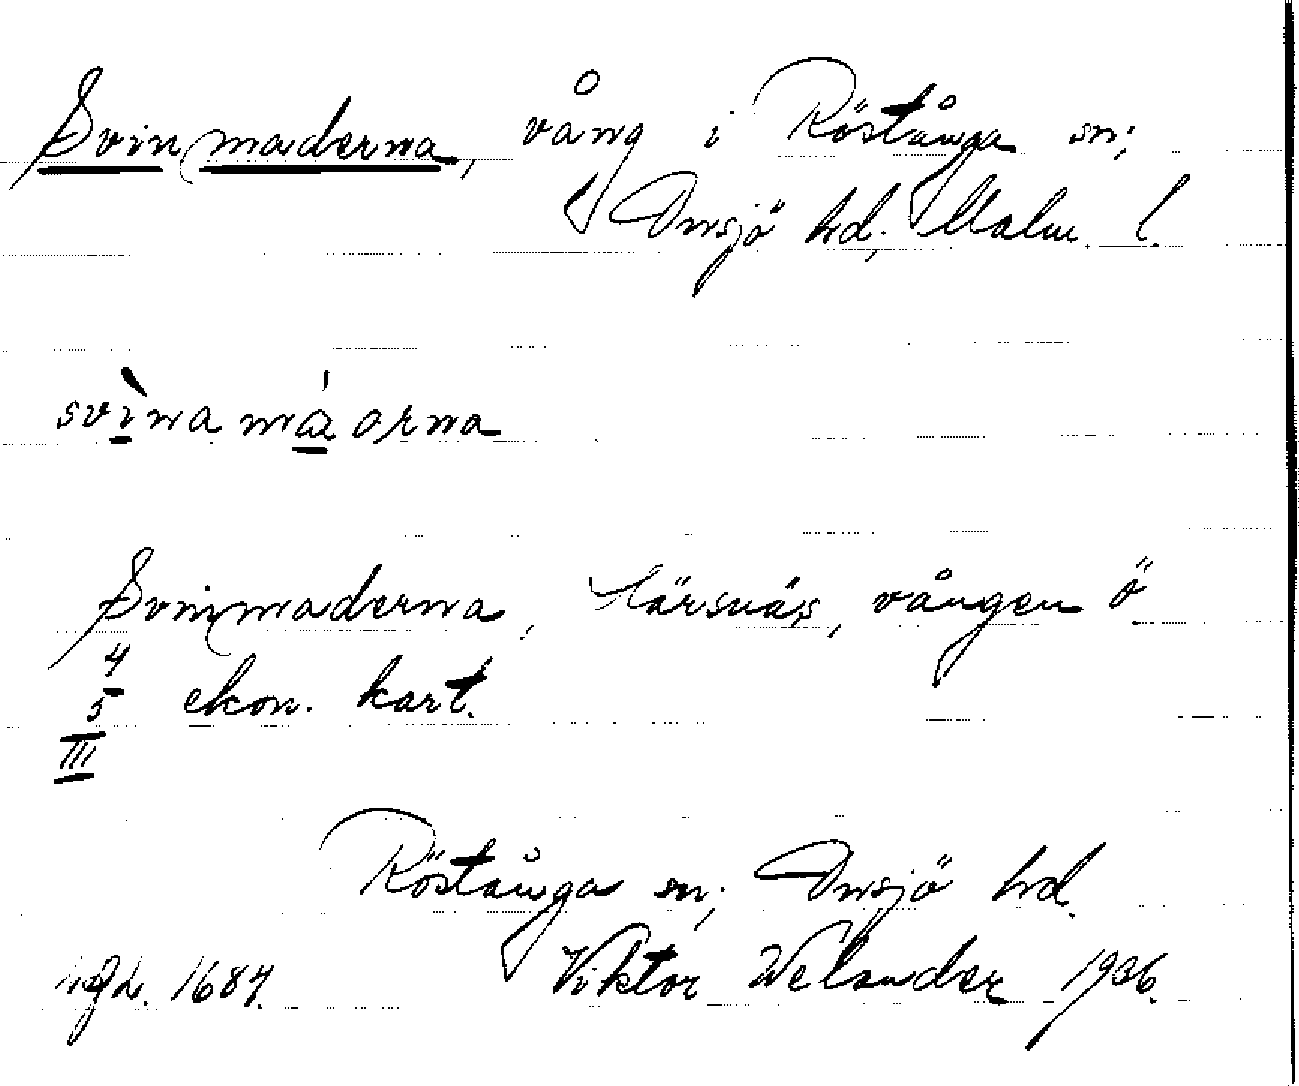 Svinmaderna, vång i Röstånga sn;
Onsjö hd, Malm. l.
svìna máorna
Svinmaderna, Härsnäs, vången ö
4
5 ekon. kart.
III
Röstånga sn; Onsjö hd.
1684. Viktor Welander 1936.